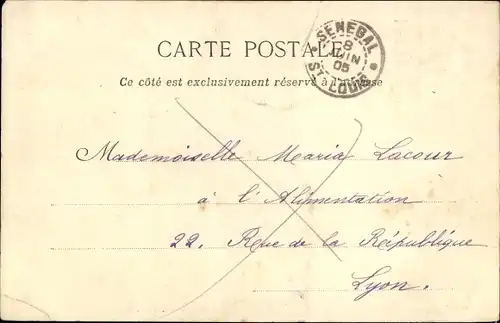 CARTE POSTALE
SENEGAL
8
JUIN
05
ST LOUIS
Ce côté est exclusivement réservé à l'adresse
Mademoiselle Maria Lacour
à l'Alimentation
22. Rue de la République
Lyon.